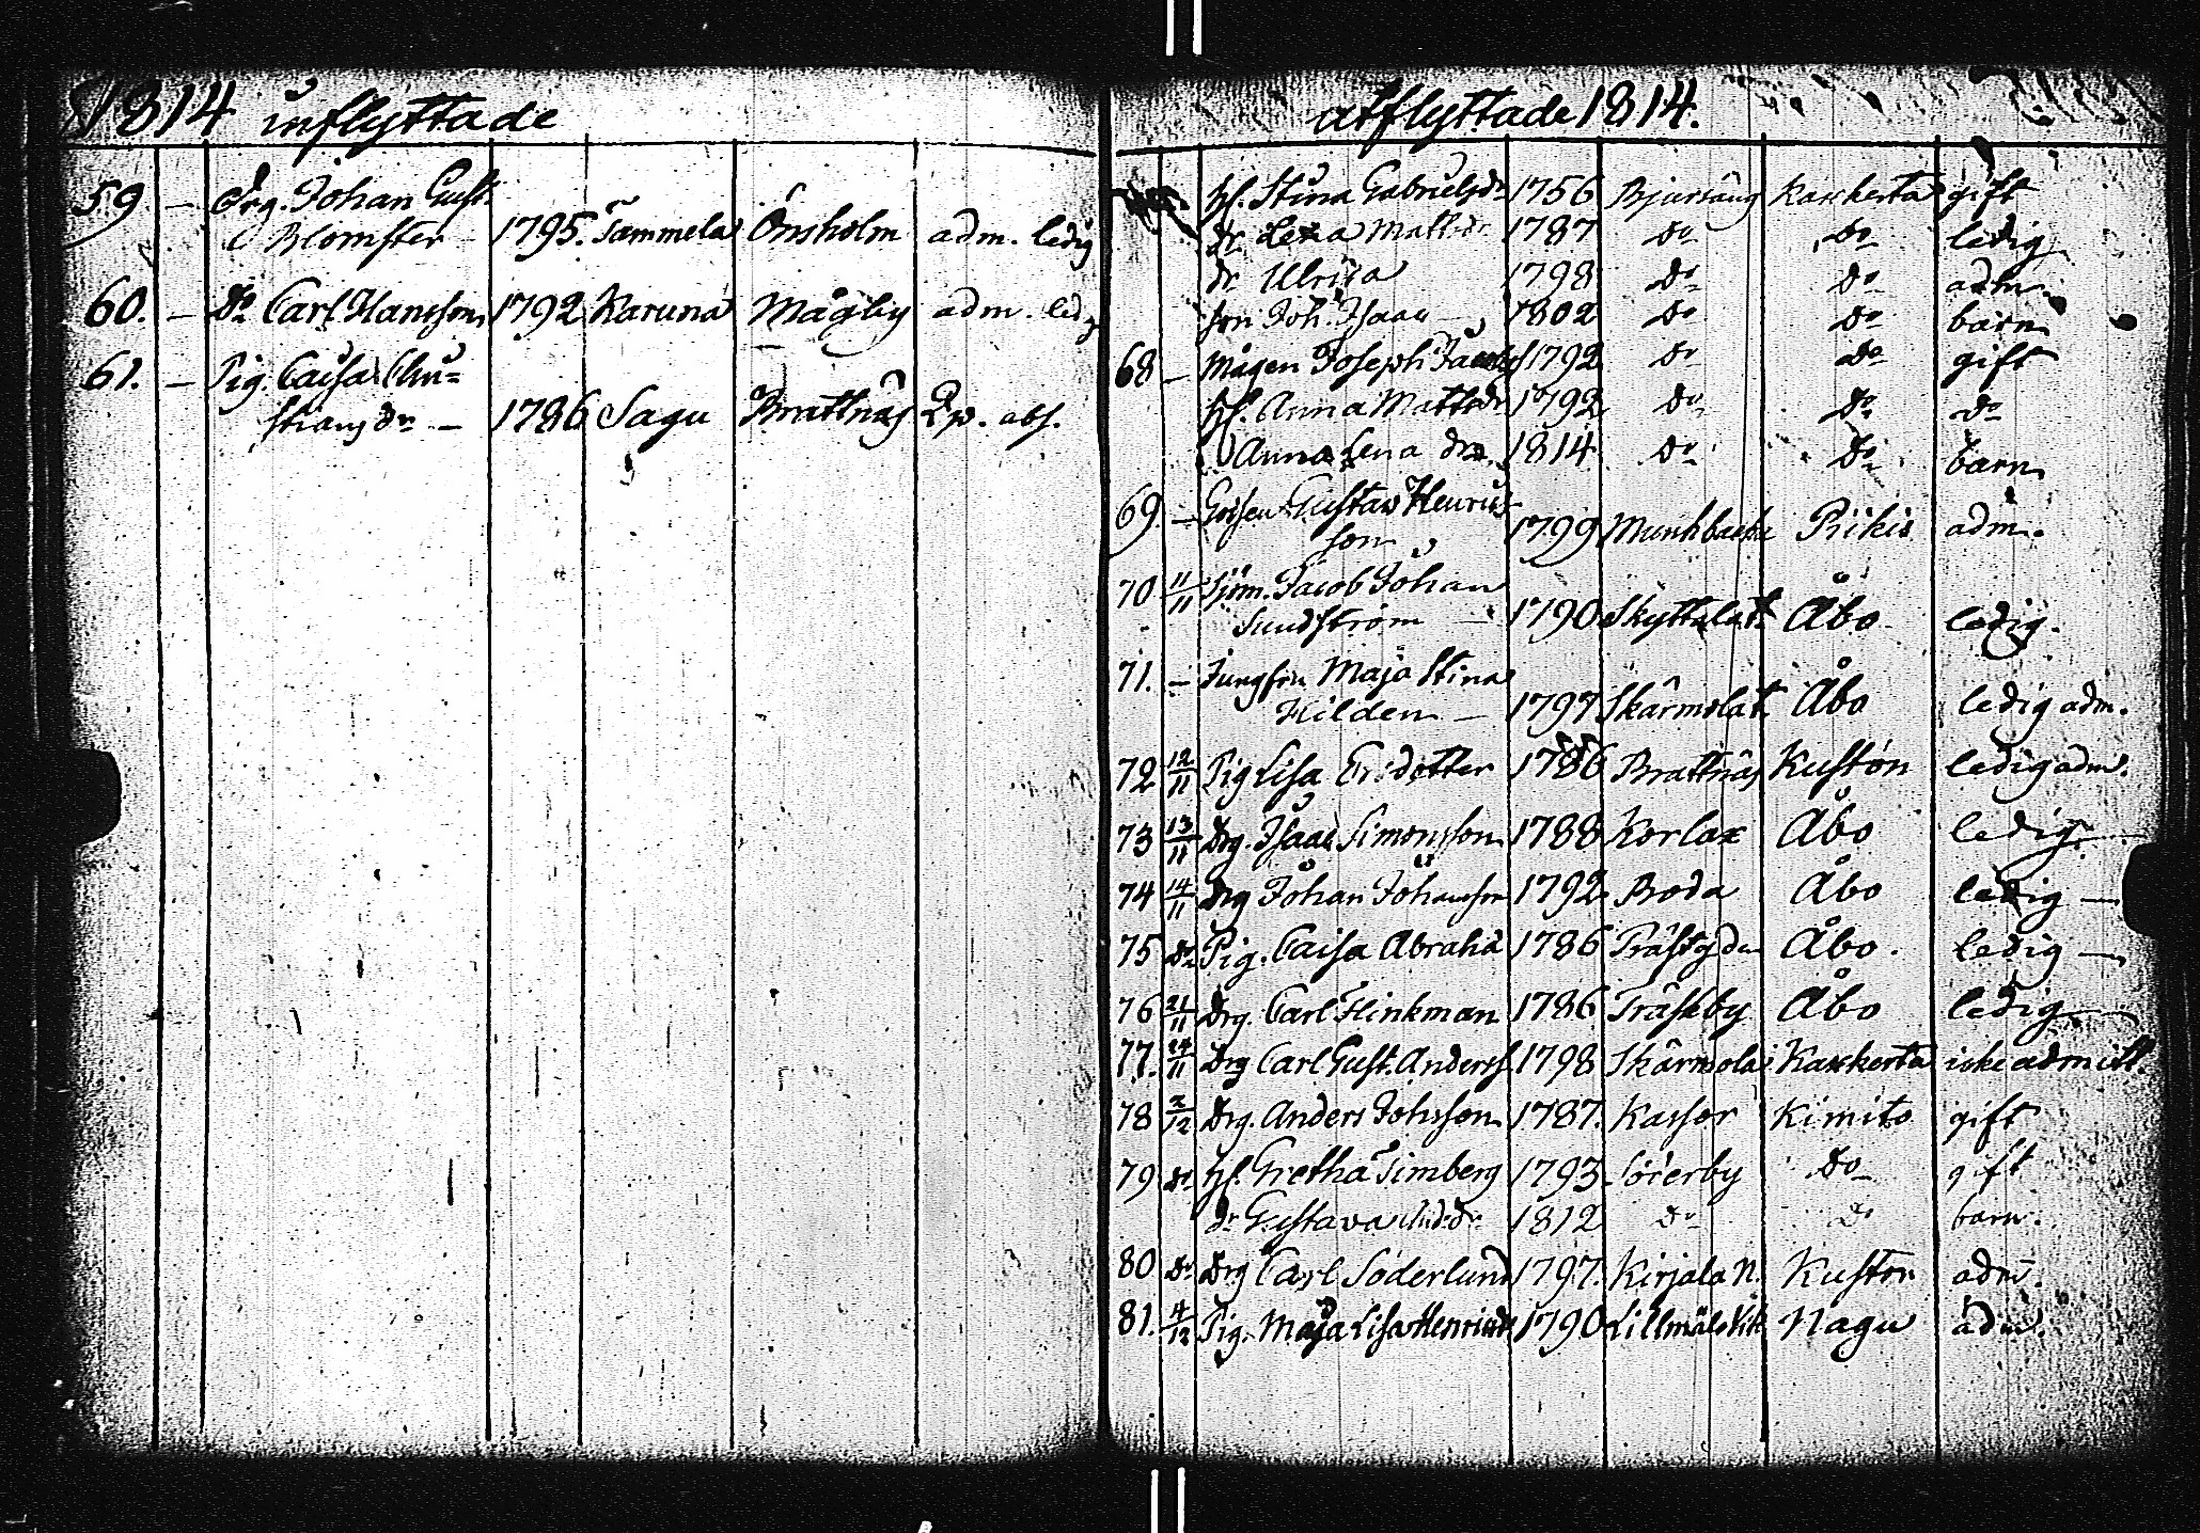 1814 inflyttade
59 – Drg. Johan Gust.
Blomster – 1795. Tammela Önsholm adm. ledig
60. – Do Carl Hansson 1792 Karuna Mågby adm. led
61. – Pig. Caisa Chri=
stiansdr – 1786 Sagu Brattnäs Qv. abs.
utflyttade 1814.
hu. Stina Gabrielsdr 1756 Bjursäng Kaxkerta gift
dr. Lena Mattsdr. 1787 do do ledig
dr. Ulrica 1798 do do adm.
son Joh. Isaac – 1802 do do barn
68 – mågen Joseph 1792 do do gift
hu. Anna Mattsdr 1792 do do do
Anna Lena dr. 1814 do do barn
69. – Gossen Gustav Henrics
son 1799 Munkbacka Piikis adm.
70 11/11 Sjöm. Jacob Johan
Sundström – 1790 Skyttalat Åbo ledig.
71. – Jungfru Maja Stina
Hilden – 1797 Skärmolat Åbo ledig adm.
72 12/11 Pig Lisa Ersdotter 1786 Brattnäs Kustön ledig adm.
73 13/11 Drg. Isaac Simonsson 1788 Korlax Åbo ledig
74 14/11 Drg Johan Johansson 1792 Broda Åbo ledig –
75 do Pig. Caisa Abrahā 1786 Åbo. ledig –
76 21/11 Drg. Carl Flinkman 1786 Träskby Åbo ledig
77. 24/11 Drg Carl Gust. Anderss. 1798 Skärmola Kaxkerta icke admitt.
78 2/12 Drg. Anders Johsson 1787. Kassor Kimito gift
79 do hu. Gretha Simberg 1793. Sörerby do gift
dr Gustava 1812 do do barn.
80 do Drg Carl Söderlund 1797. Kirjala N. Kustön adm.
81. 4/12 Pig. Maja Lisa Henricsdr 1790 Lillmälö Nagu adm.